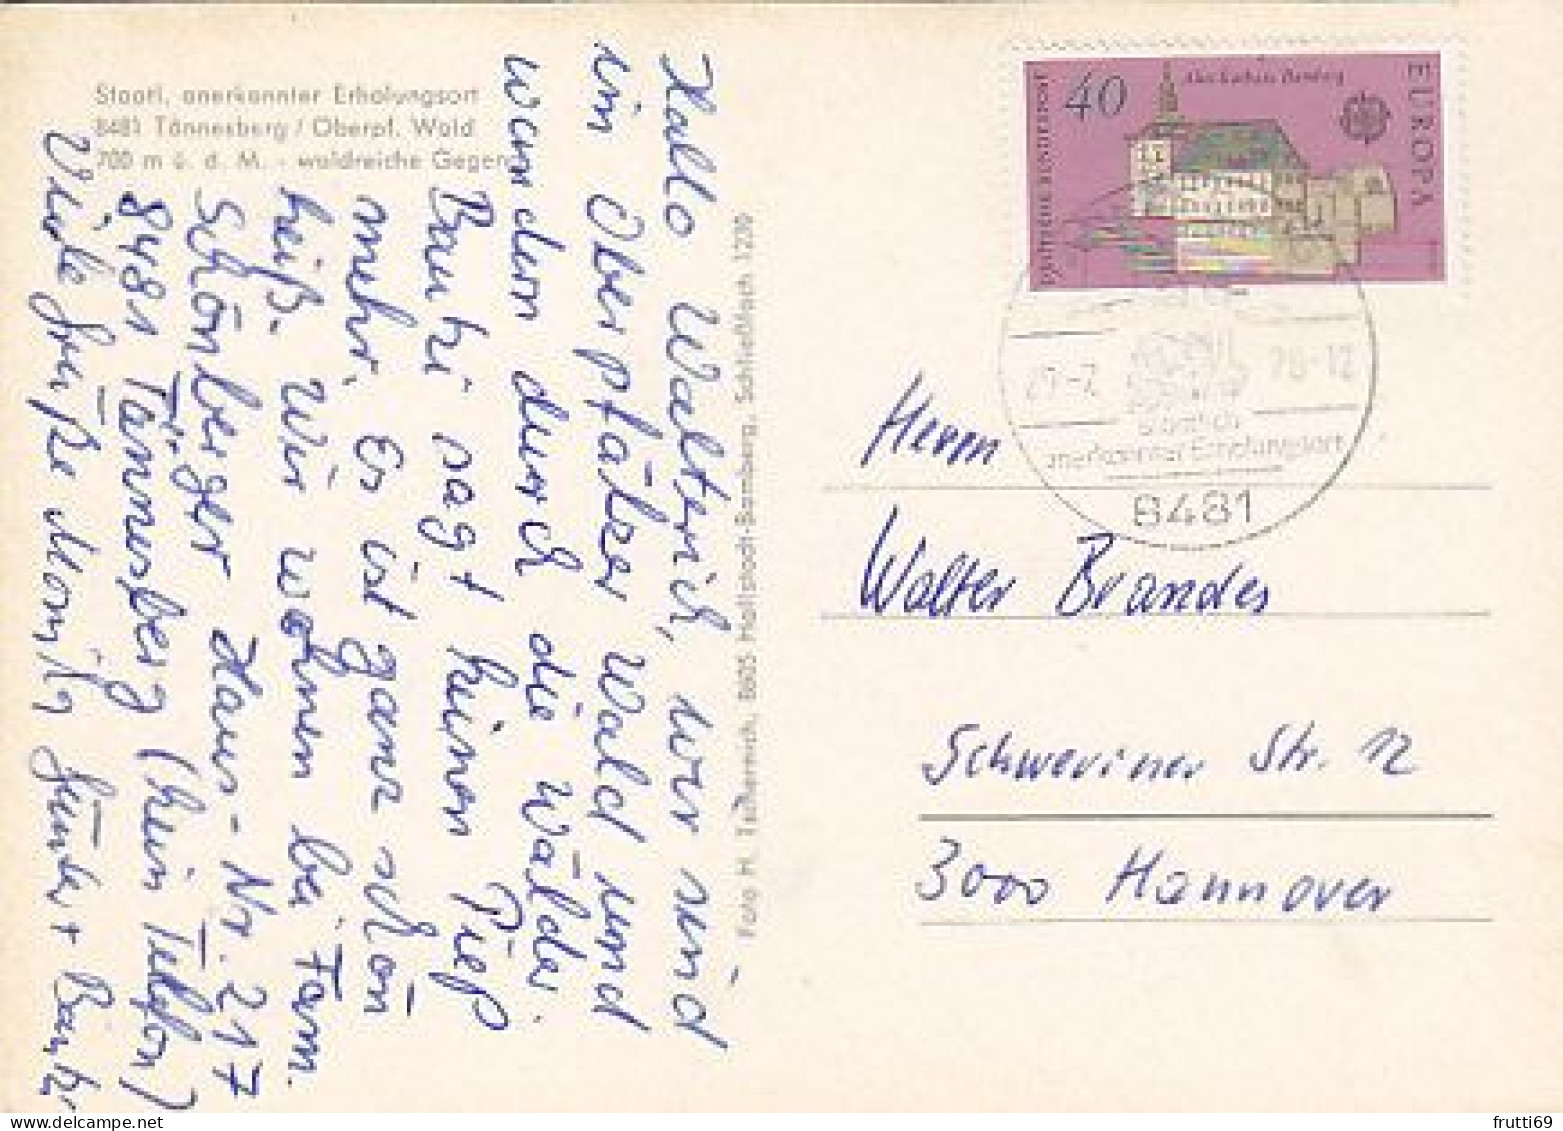 Staatl. anerkannter Erholungsort
8481 Tännesberg / Oberpf. Wald
700 m ü. d. M. - waldreiche Gegend
Hallo Walterich, wir sind
im Oberpfälzer Wald und
wandern durch die Wälder.
Bauki sagt keinen Pieß
mehr. Er ist ganz schön
heiß. Wir wohnen bei Fam.
Schönberger Haus-Nr. 217
8481 Tännesberg (kein Telefon)
Viele Grüße Moni, Günter + Bauki
Foto H. Tschernich, 8605 Hallstadt-Bamberg, Schließfach 1230
DEUTSCHE BUNDESPOST
40
Altes Rathaus Bamberg
EUROPA
78-12
Staatlich
anerkannter Erholungsort
8481
Herrn
Walter Brandes
Schweriner Str. 12
3000 Hannover
frutti69